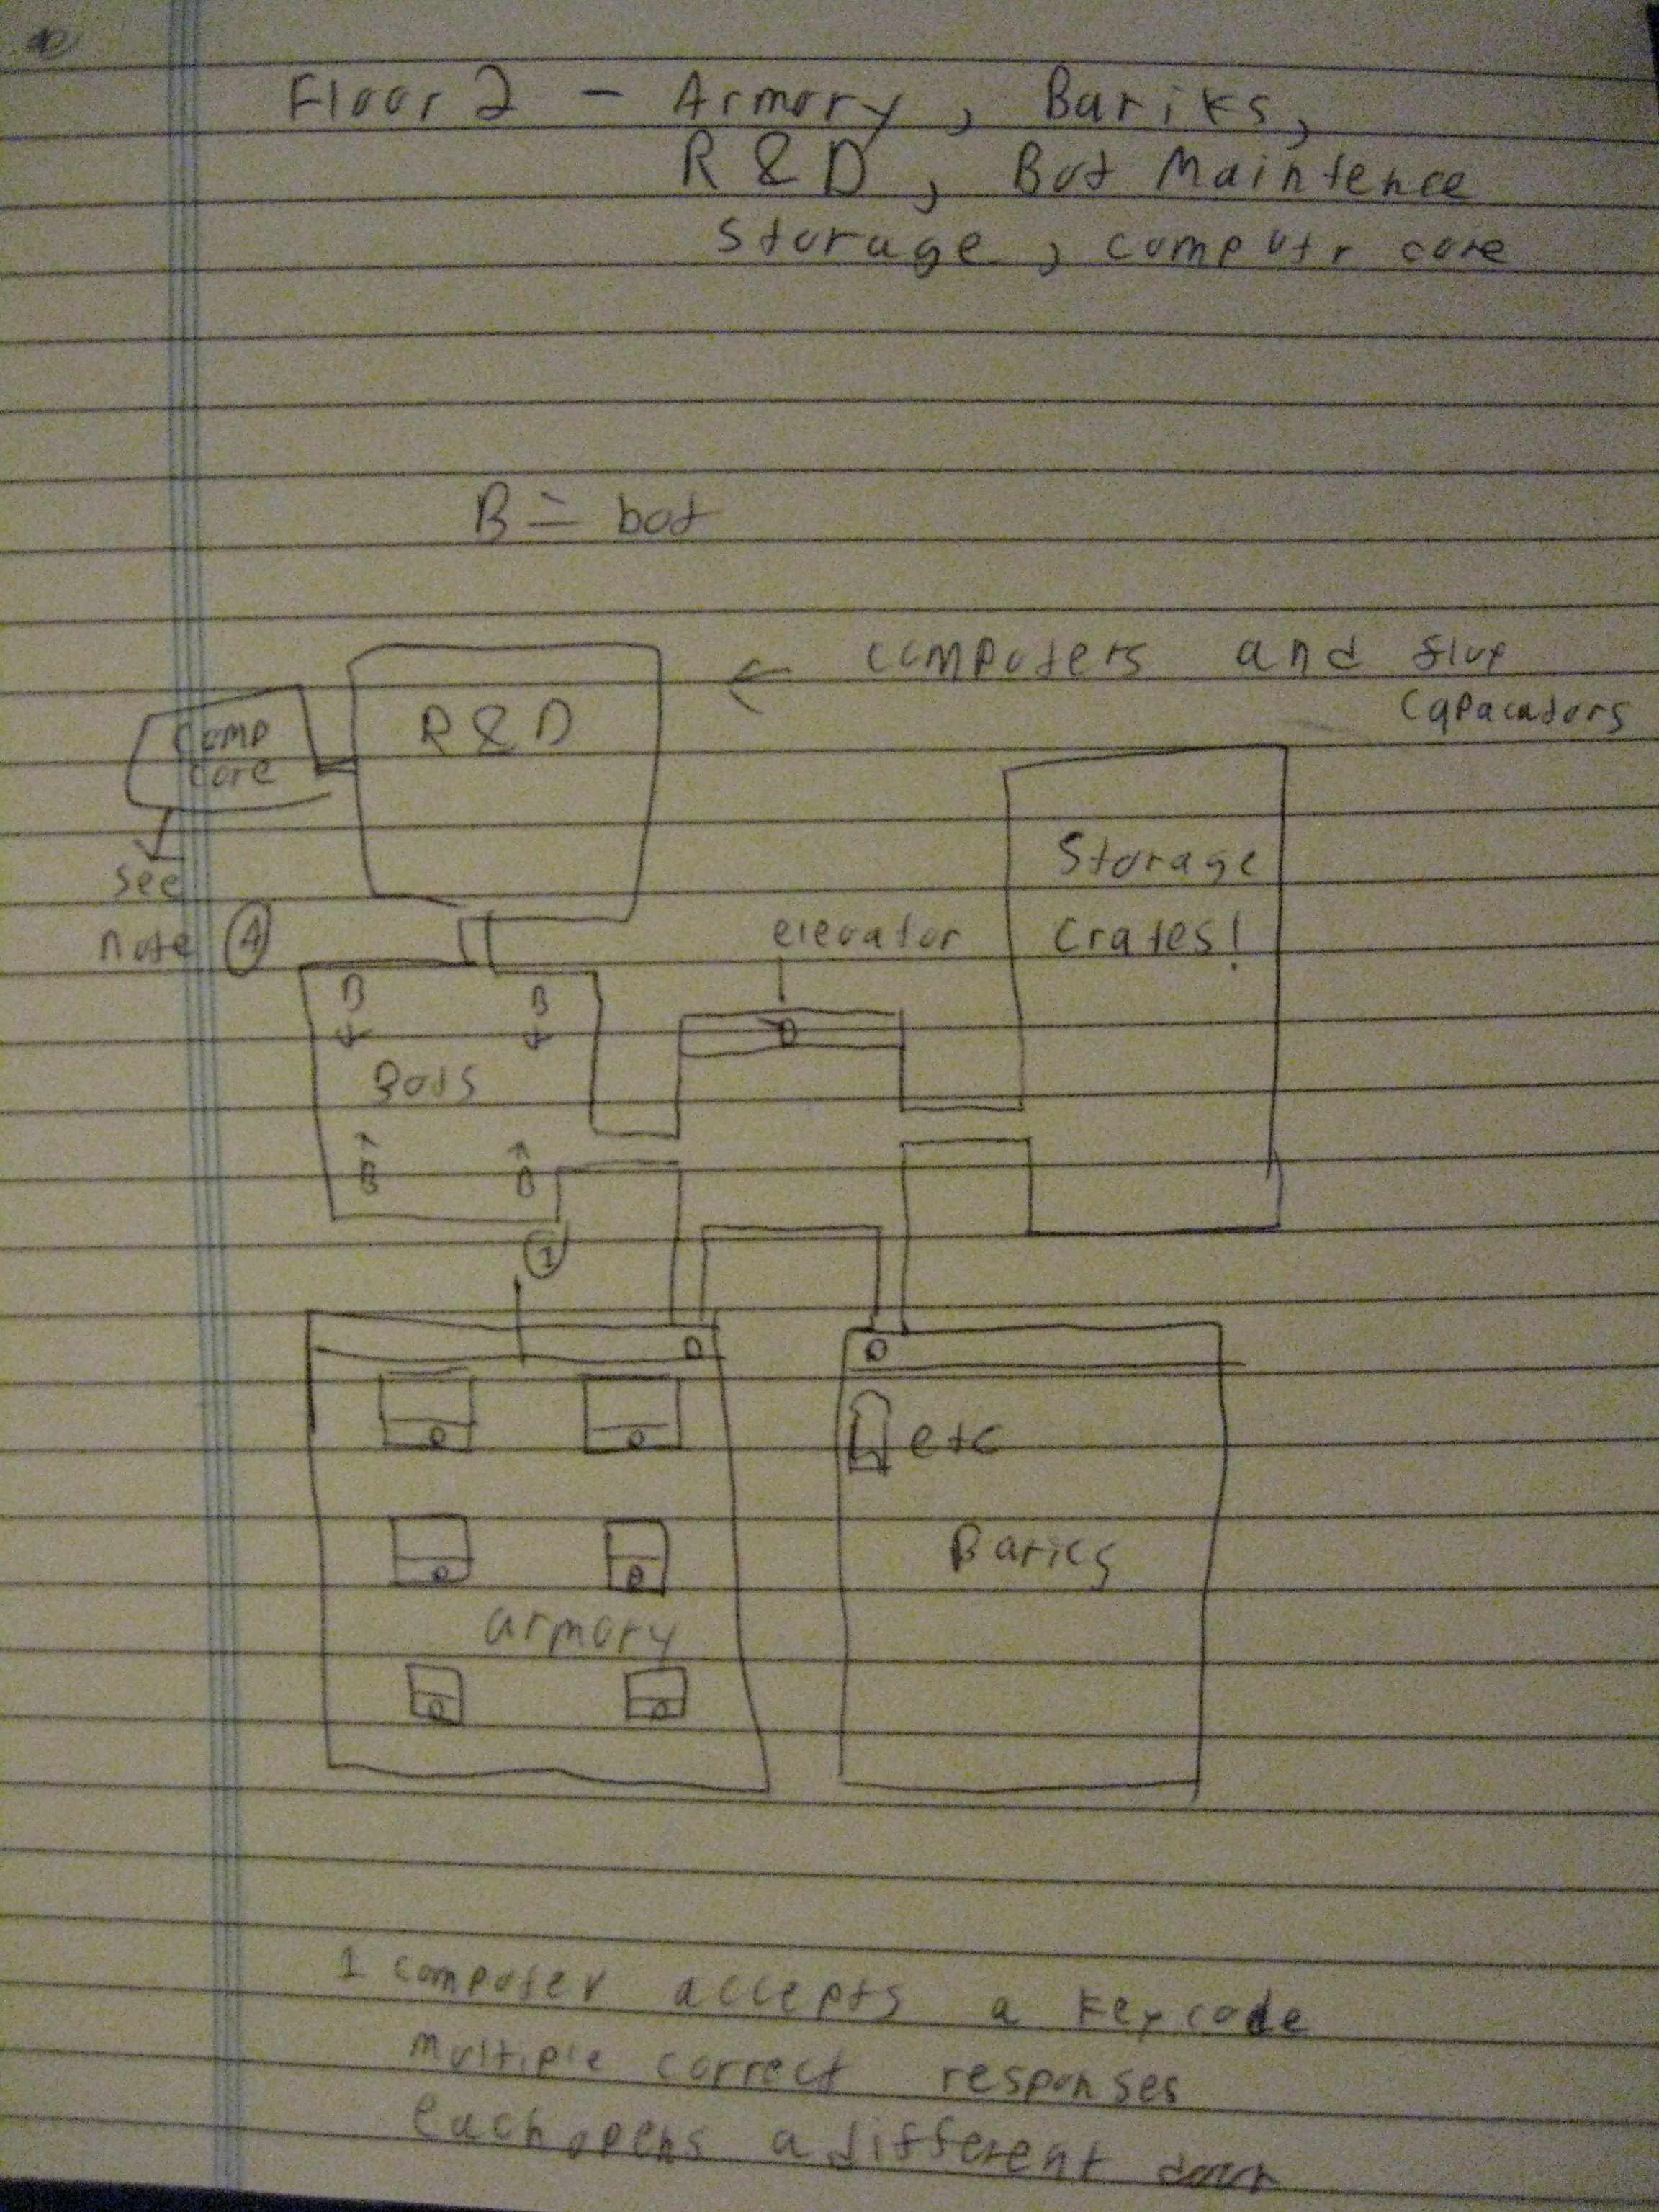 Floor 2 - Armory, Bariks,
R & D, Bot Maintence
storage, computr core
B = bot
← computers and flux
capacadors
R & D
comp
core
see
note A
Storage
Crates!
elevator
B B
Bots
B B
1
D D
etc
Barics
armory
1 computer accepts a keycode
multiple correct responses
each opens a different door